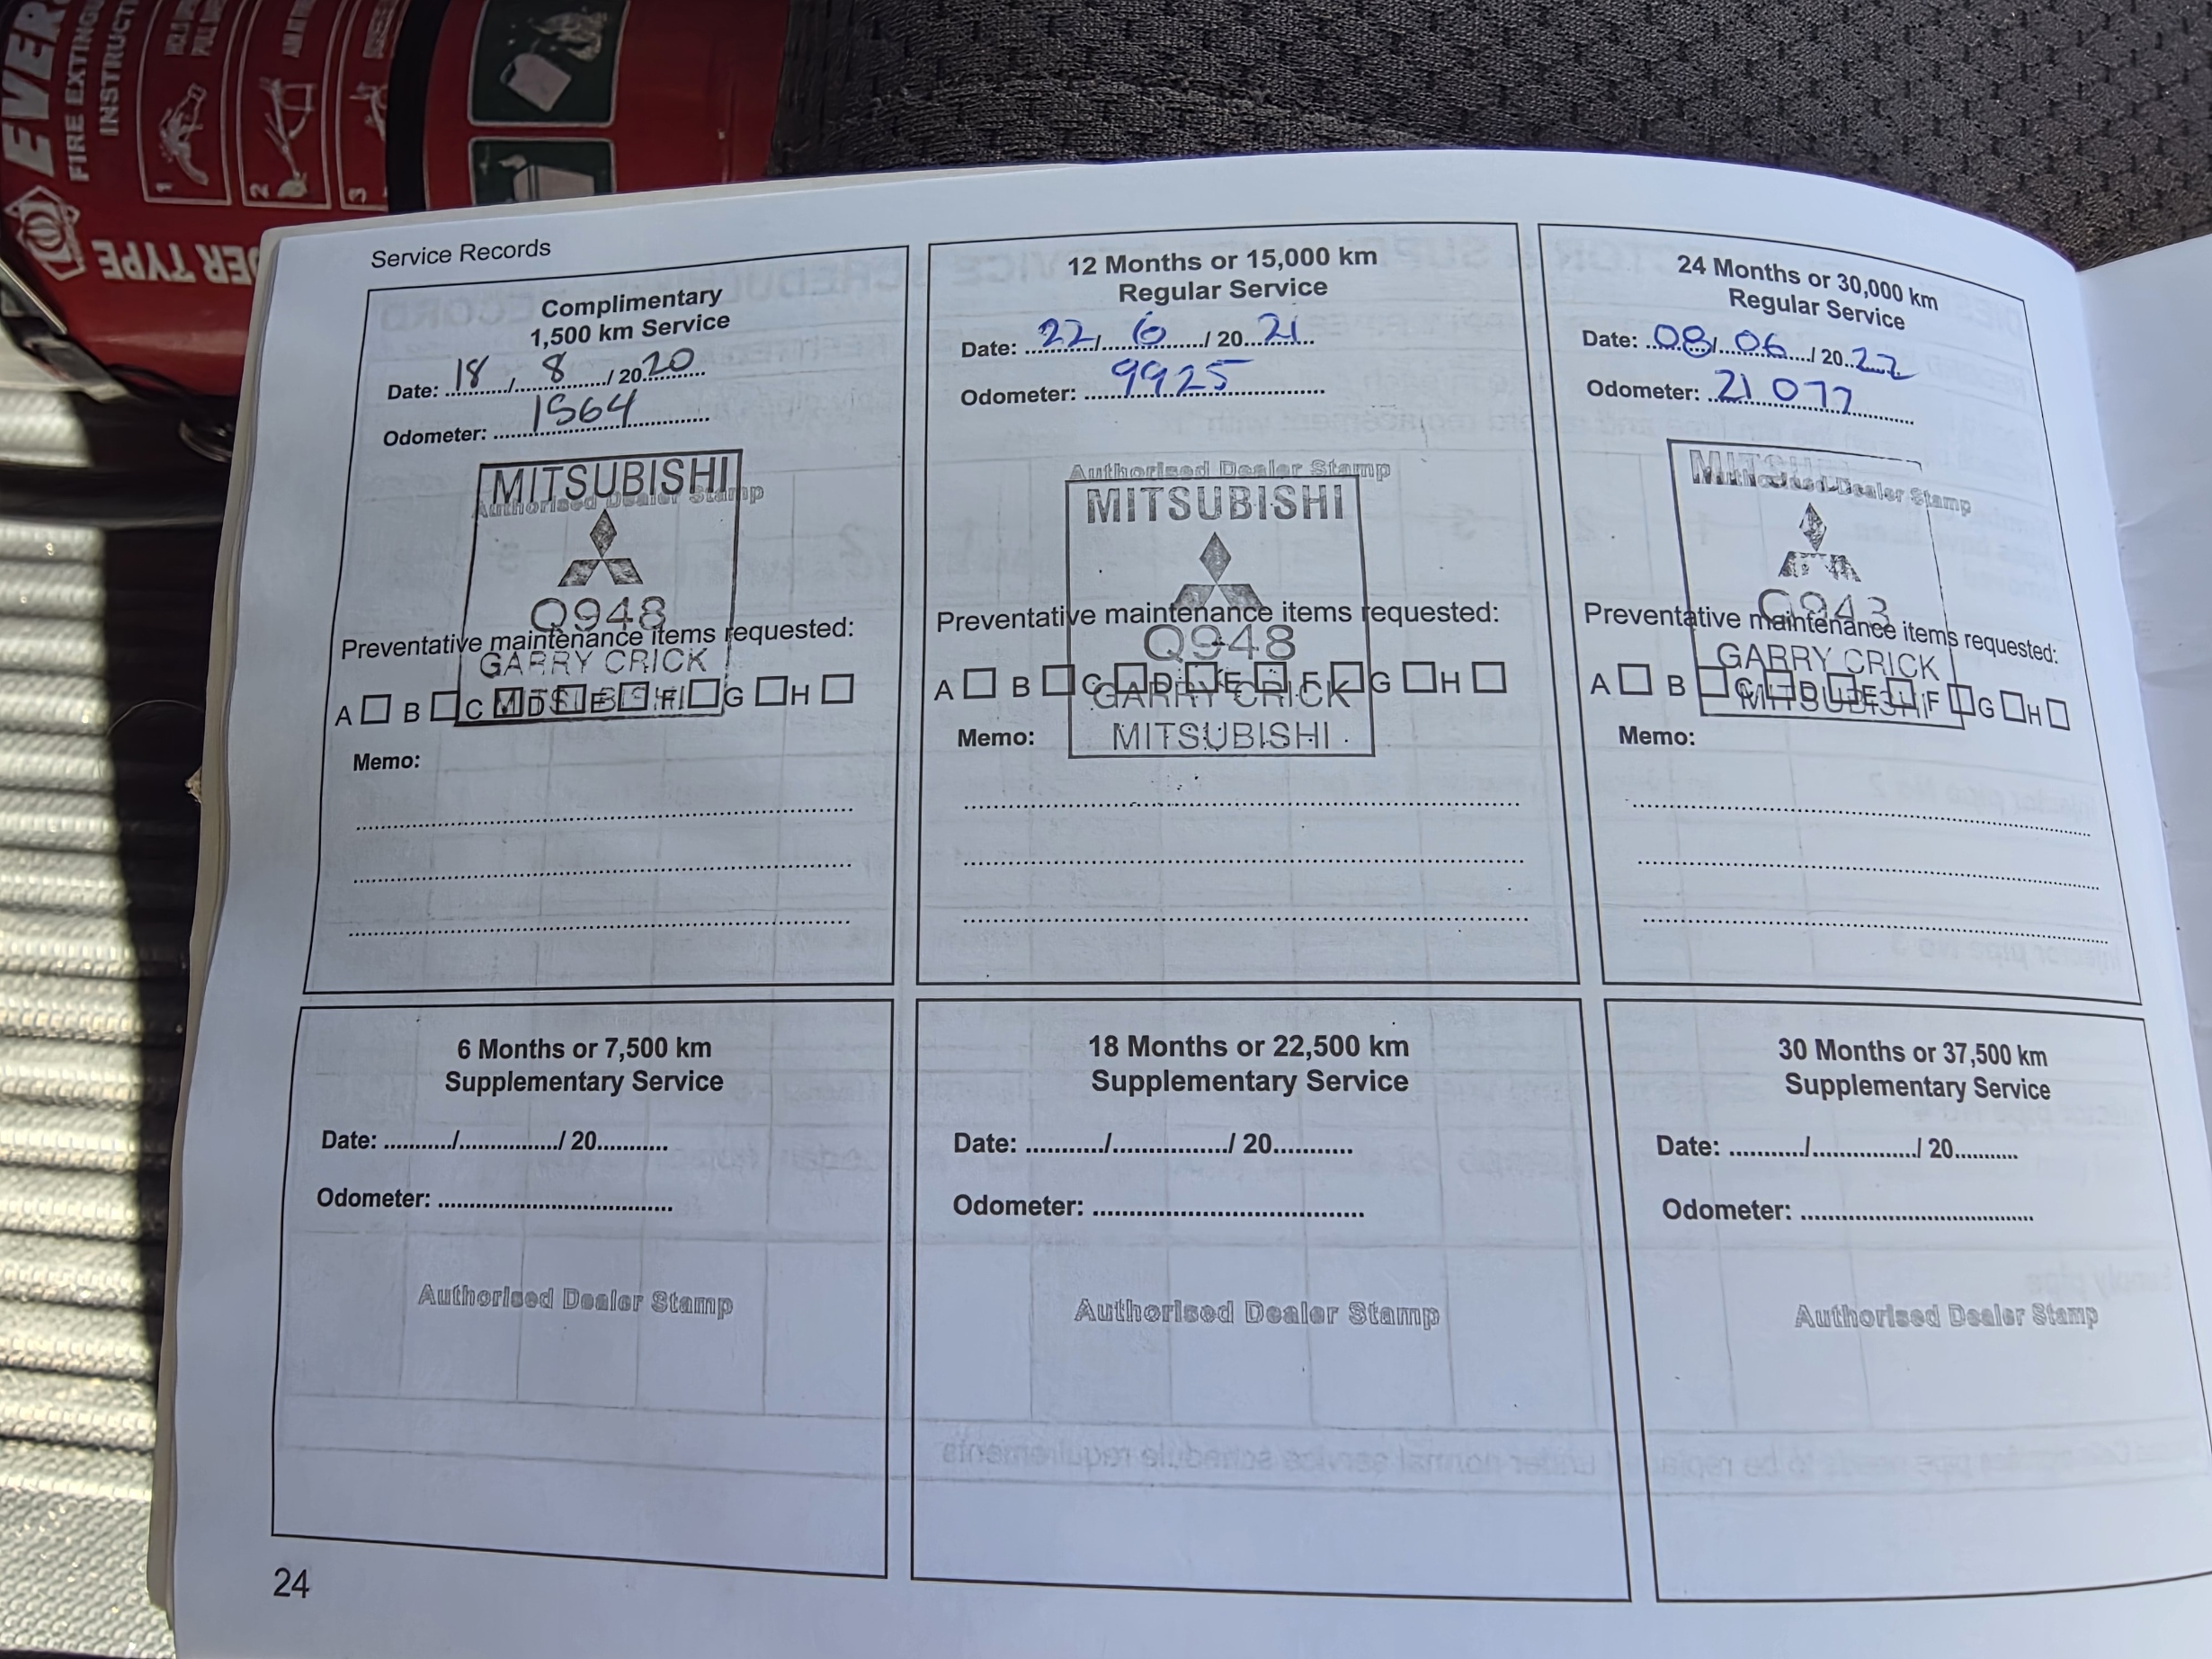 EVER
FIRE EXTING
INSTRUCT
1
2
3
DER TYPE
Service Records
Complimentary
1,500 km Service
Date: 18 / 8 / 20 20
Odometer: 1564
MITSUBISHI
Authorised Dealer Stamp
Q948
Preventative maintenance items requested:
GARRY CRICK
A B C D E F G H
MITSUBISHI
Memo:
12 Months or 15,000 km
Regular Service
Date: 22 / 6 / 20 21
Odometer: 9925
Authorised Dealer Stamp
MITSUBISHI
Preventative maintenance items requested:
Q948
A B C D E F G H
GARRY CRICK
Memo:
MITSUBISHI
24 Months or 30,000 km
Regular Service
Date: 08 / 06 / 20 22
Odometer: 21 077
Authorised Dealer Stamp
Preventative maintenance items requested:
GARRY CRICK
A B C D E F G H
MITSUBISHI
Memo:
6 Months or 7,500 km
Supplementary Service
Date: ........../.............../ 20...........
Odometer: ....................................
Authorised Dealer Stamp
18 Months or 22,500 km
Supplementary Service
Date: ........../.............../ 20...........
Odometer: ....................................
Authorised Dealer Stamp
30 Months or 37,500 km
Supplementary Service
Date: ........../.............../ 20...........
Odometer: ....................................
Authorised Dealer Stamp
24